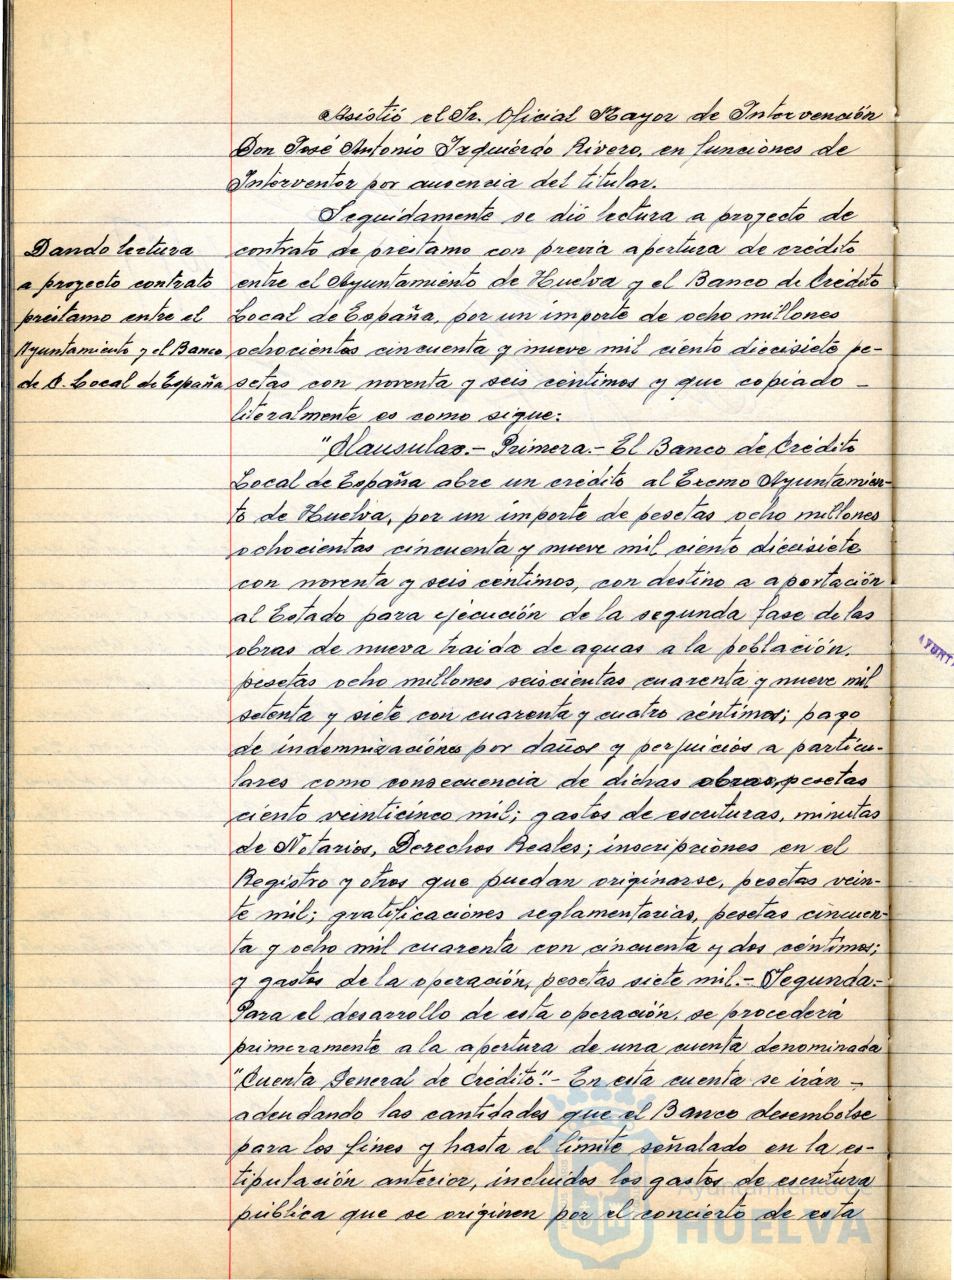 Asistió el Sr. Oficial Mayor de Intervención
Don José Antonio Izquierdo Rivero, en funciones de
Interventor por ausencia del titular.
Seguidamente se dió lectura a proyecto de
contrato de préstamo con previa apertura de crédito
entre el Ayuntamiento de Huelva y el Banco de Crédito
Local de España, por un importe de ocho millones
ochocientas cincuenta y nueve mil ciento diecisiete pe-
setas con noventa y seis céntimos y que copiado -
literalmente es como sigue:
Dando lectura
a proyecto contrato
préstamo entre el
Ayuntamiento y el Banco
de C. Local de España
"Clausulas.- Primera.- El Banco de Crédito
Local de España abre un crédito al Excmo Ayuntamien-
to de Huelva, por un importe de pesetas ocho millones
ochocientas cincuenta y nueve mil ciento diecisiete
con noventa y seis céntimos, con destino a aportación
al Estado para ejecución de la segunda fase de las
obras de nueva traida de aguas a la población,
pesetas ocho millones seiscientas cuarenta y nueve mil
setenta y siete con cuarenta y cuatro céntimos; pago
de indemnizaciónes por daños y perjuicios a particu-
lares como consecuencia de dichas obras, pesetas
ciento veinticinco mil; gastos de escrituras, minutas
de Notarios, Derechos Reales; inscripciónes en el
Registro y otros que puedan originarse, pesetas vein-
te mil; gratificaciones reglamentarias, pesetas cincuen-
ta y ocho mil cuarenta con cincuenta y dos céntimos;
y gastos de la operación, pesetas siete mil.- Segunda.-
Para el desarrollo de esta operación, se procederá
primeramente a la apertura de una cuenta denominada
"Cuenta General de Crédito".- En esta cuenta se irán -
adeudando las cantidades que el Banco desembolse
para los fines y hasta el límite señalado en la es-
tipulación anterior, incluidos los gastos de escritura
pública que se originen por el concierto de esta
Ayuntamiento de
HUELVA